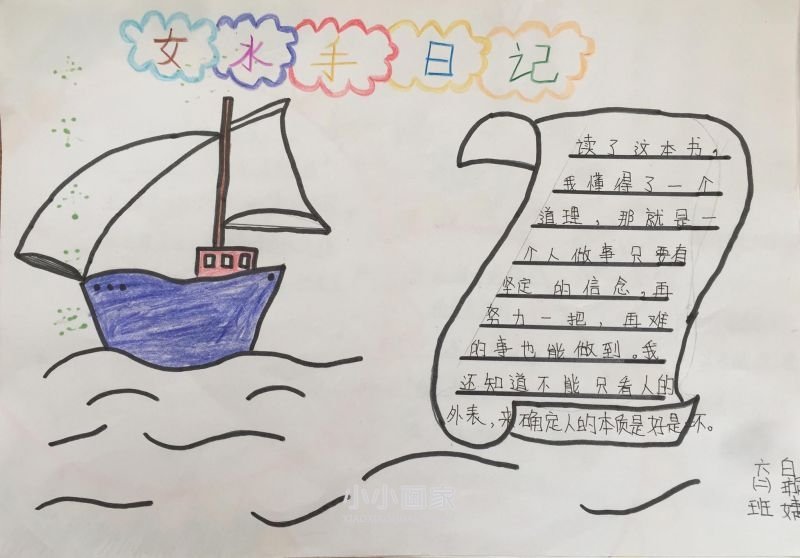 女水手日记
读了这本书，
我懂得了一个
道理，那就是一
个人做事只要有
坚定的信念，再
努力一把，再难
的事也能做到。我
还知道不能只看人的
外表，来确定人的本质是好是坏。
六(二)班
白
小小画家